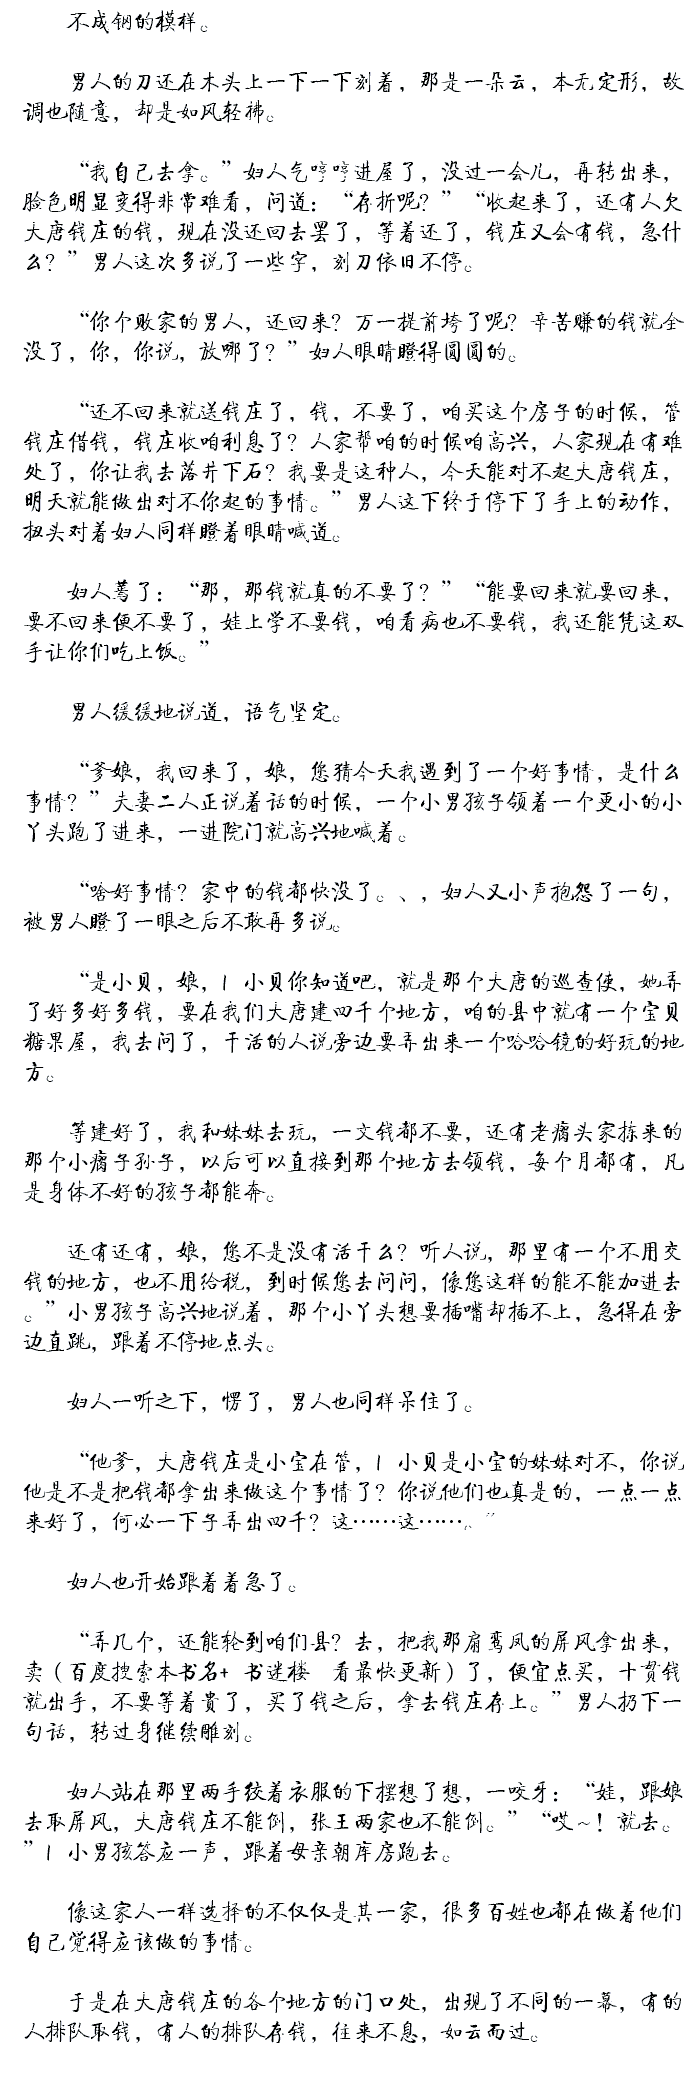 不成钢的模样。
男人的刀还在木头上一下一下刻着，那是一朵云，本无定形，故
调也随意，却是如风轻拂。
“我自己去拿。”妇人气哼哼进屋了，没过一会儿，再转出来，
脸色明显变得非常难看，问道：“存折呢？”“收起来了，还有人欠
大唐钱庄的钱，现在没还回去罢了，等着还了，钱庄又会有钱，急什
么？”男人这次多说了一些字，刻刀依旧不停。
“你个败家的男人，还回来？万一提前垮了呢？辛苦赚的钱就全
没了，你，你说，放哪了？”妇人眼睛瞪得圆圆的。
“还不回来就送钱庄了，钱，不要了，咱买这个房子的时候，管
钱庄借钱，钱庄收咱利息了？人家帮咱的时候咱高兴，人家现在有难
处了，你让我去落井下石？我要是这种人，今天能对不起大唐钱庄，
明天就能做出对不你起的事情。”男人这下终于停下了手上的动作，
扭头对着妇人同样瞪着眼睛喊道。
妇人蔫了：“那，那钱就真的不要了？”“能要回来就要回来，
要不回来便不要了，娃上学不要钱，咱看病也不要钱，我还能凭这双
手让你们吃上饭。”
男人缓缓地说道，语气坚定。
“爹娘，我回来了，娘，您猜今天我遇到了一个好事情，是什么
事情？”夫妻二人正说着话的时候，一个小男孩子领着一个更小的小
丫头跑了进来，一进院门就高兴地喊着。
“啥好事情？家中的钱都快没了。、，妇人又小声抱怨了一句，
被男人瞪了一眼之后不敢再多说。
“是小贝，娘，l 小贝你知道吧，就是那个大唐的巡查使，她弄
了好多好多钱，要在我们大唐建四千个地方，咱的县中就有一个宝贝
糖果屋，我去问了，干活的人说旁边要弄出来一个哈哈镜的好玩的地
方。
等建好了，我和妹妹去玩，一文钱都不要，还有老瘸头家拣来的
那个小瘸子孙子，以后可以直接到那个地方去领钱，每个月都有，凡
是身体不好的孩子都能奔。
还有还有，娘，您不是没有活干么？听人说，那里有一个不用交
钱的地方，也不用给税，到时候您去问问，像您这样的能不能加进去
。”小男孩子高兴地说着，那个小丫头想要插嘴却插不上，急得在旁
边直跳，跟着不停地点头。
妇人一听之下，愣了，男人也同样呆住了。
“他爹，大唐钱庄是小宝在管，l 小贝是小宝的妹妹对不，你说
他是不是把钱都拿出来做这个事情了？你说他们也真是的，一点一点
来好了，何必一下子弄出四千？这……这……。”
妇人也开始跟着着急了。
“弄几个，还能轮到咱们县？去，把我那扇鸾凤的屏风拿出来，
卖（百度搜索本书名+ 书迷楼 看最快更新）了，便宜点买，十贯钱
就出手，不要等着贵了，买了钱之后，拿去钱庄存上。”男人扔下一
句话，转过身继续雕刻。
妇人站在那里两手绞着衣服的下摆想了想，一咬牙：“娃，跟娘
去取屏风，大唐钱庄不能倒，张王两家也不能倒。”“哎～！就去。
”l 小男孩答应一声，跟着母亲朝库房跑去。
像这家人一样选择的不仅仅是其一家，很多百姓也都在做着他们
自己觉得应该做的事情。
于是在大唐钱庄的各个地方的门口处，出现了不同的一幕，有的
人排队取钱，有人的排队存钱，往来不息，如云而过。